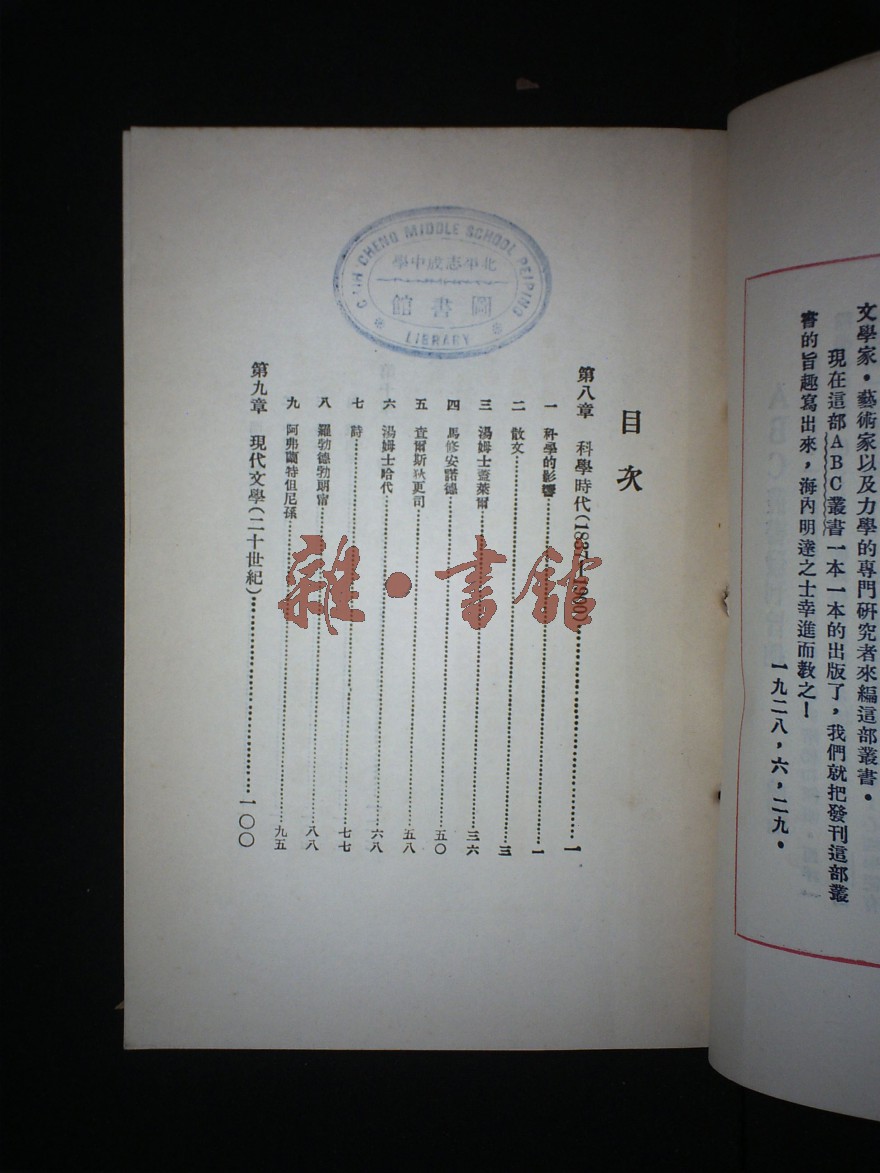 文學家,藝術家以及力學的專門研究者來編這部叢書。
現在這部ABC叢書一本一本的出版了,我們就把發刊這部叢
書的旨趣寫出來,海內明達之士幸進而教之!
一九二八,六,二九。
目次
第八章 科學時代(1837—1900)…………一
一 科學的影響…………一
二 散文…………三
三 湯姆士蓋萊爾…………三六
四 馬修安諾德…………五〇
五 查爾斯狄更司…………五八
六 湯姆士哈代…………六八
七 詩…………七七
八 羅勃德勃朗甯…………八八
九 阿弗蘭特但尼孫…………九五
第九章 現代文學(二十世紀)…………一〇〇
CHIH CHENG MIDDLE SCHOOL PEIPING
學中成志平北
館書圖
LIBRARY
雜·書館